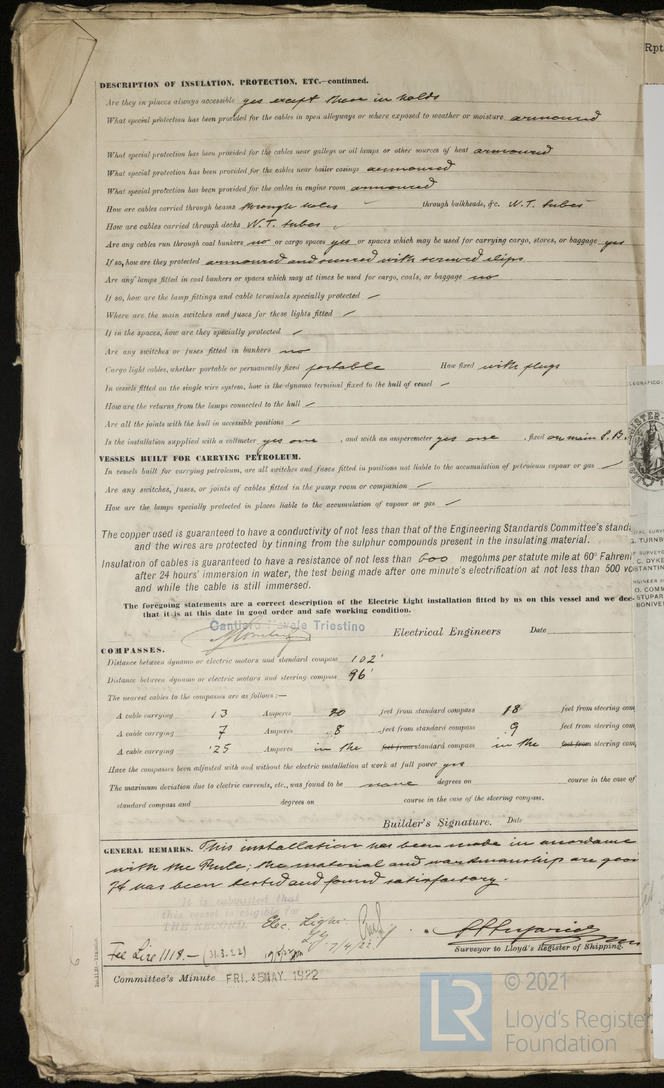 Rpt
DESCRIPTION OF INSULATION, PROTECTION, ETC.—continued.
Are they in places always accessible yes except those in holds
What special protection has been provided for the cables in open alleyways or where exposed to weather or moisture armoured
What special protection has been provided for the cables near galleys or oil lamps or other sources of heat armoured
What special protection has been provided for the cables near boiler casings armoured
What special protection has been provided for the cables in engine room armoured
How are cables carried through beams through holes through bulkheads, &c. W.T. tubes
How are cables carried through decks W.T. tubes
Are any cables run through coal bunkers no or cargo spaces yes or spaces which may be used for carrying cargo, stores, or baggage yes
If so, how are they protected armoured and secured with screwed clips
Are any lamps fitted in coal bunkers or spaces which may at times be used for cargo, coals, or baggage no
If so, how are the lamp fittings and cable terminals specially protected /
Where are the main switches and fuses for these lights fitted /
If in the spaces, how are they specially protected /
Are any switches or fuses fitted in bunkers no
Cargo light cables, whether portable or permanently fixed portable How fixed with plugs
In vessels fitted on the single wire system, how is the dynamo terminal fixed to the hull of vessel /
How are the returns from the lamps connected to the hull /
Are all the joints with the hull in accessible positions /
Is the installation supplied with a voltmeter yes one , and with an amperemeter yes one , fixed on main S.B.
VESSELS BUILT FOR CARRYING PETROLEUM.
In vessels built for carrying petroleum, are all switches and fuses fitted in positions not liable to the accumulation of petroleum vapour or gas /
Are any switches, fuses, or joints of cables fitted in the pump room or companion /
How are the lamps specially protected in places liable to the accumulation of vapour or gas /
The copper used is guaranteed to have a conductivity of not less than that of the Engineering Standards Committee's stand
and the wires are protected by tinning from the sulphur compounds present in the insulating material.
Insulation of cables is guaranteed to have a resistance of not less than 600 megohms per statute mile at 60° Fahrenh
after 24 hours' immersion in water, the test being made after one minute's electrification at not less than 500 vo
and while the cable is still immersed.
The foregoing statements are a correct description of the Electric Light installation fitted by us on this vessel and we dec
that it is at this date in good order and safe working condition.
Cantiere Navale Triestino
Electrical Engineers Date
COMPASSES.
Distance between dynamo or electric motors and standard compass 102'
Distance between dynamo or electric motors and steering compass 96'
The nearest cables to the compasses are as follows:—
A cable carrying 13 Amperes 20 feet from standard compass 18 feet from steering com
A cable carrying 7 Amperes 8 feet from standard compass 9 feet from steering com
A cable carrying '25 Amperes in the feet from standard compass in the feet from steering com
Have the compasses been adjusted with and without the electric installation at work at full power yes
The maximum deviation due to electric currents, etc., was found to be none degrees on course in the case of
standard compass and degrees on course in the case of the steering compass.
Builder's Signature. Date
GENERAL REMARKS. This installation has been made in accordance
with the Rule; the material and workmanship are good
It has been tested and found satisfactory.
It is submitted that
this vessel is eligible for
THE RECORD. Elec. Light.
7/4/22
Fee Lire 1118.— (31.3.22)
Surveyor to Lloyd's Register of Shipping.
Committee's Minute FRI. 5 MAY. 1922
© 2021
LR
Lloyd's Register
Foundation